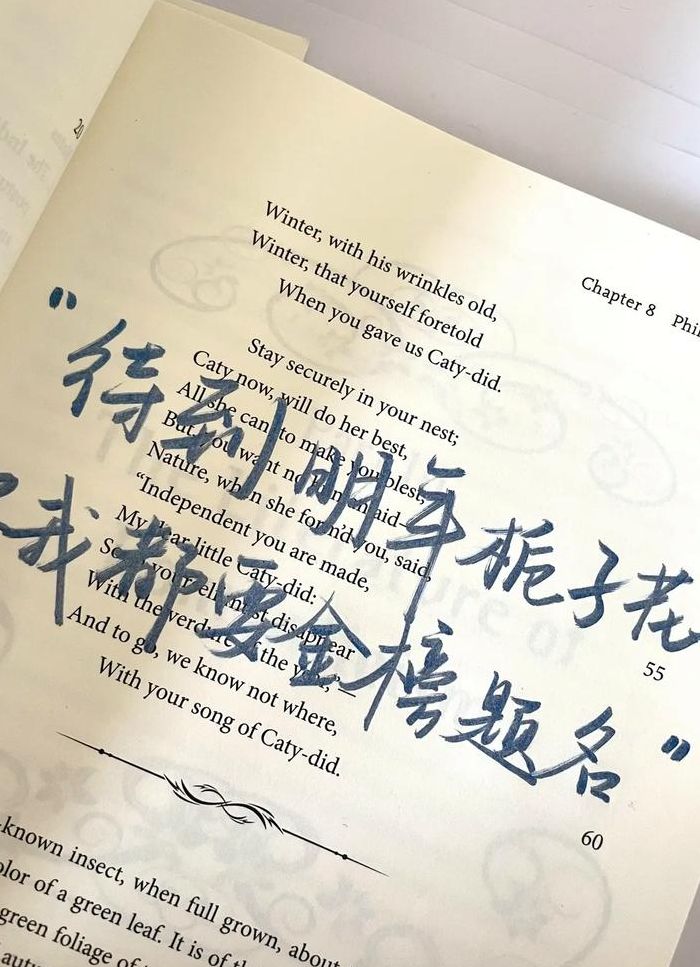 Chapter 8
Winter, with his wrinkles old,
Winter, that yourself foretold
When you gave us Caty-did.
Stay securely in your nest;
Caty now, will do her best,
All she can, to make you blest;
But, you want no human aid—
Nature, when she form'd you, said,
“Independent you are made,
My dear little Caty-did:
Soon yourself must disappear
With the verdure of the year,”—
And to go, we know not where,
With your song of Caty-did.
55
60
"待到明年栀子花
我都要金榜题名"
known insect, when full grown, about
color of a green leaf. It is of the
green foliage of